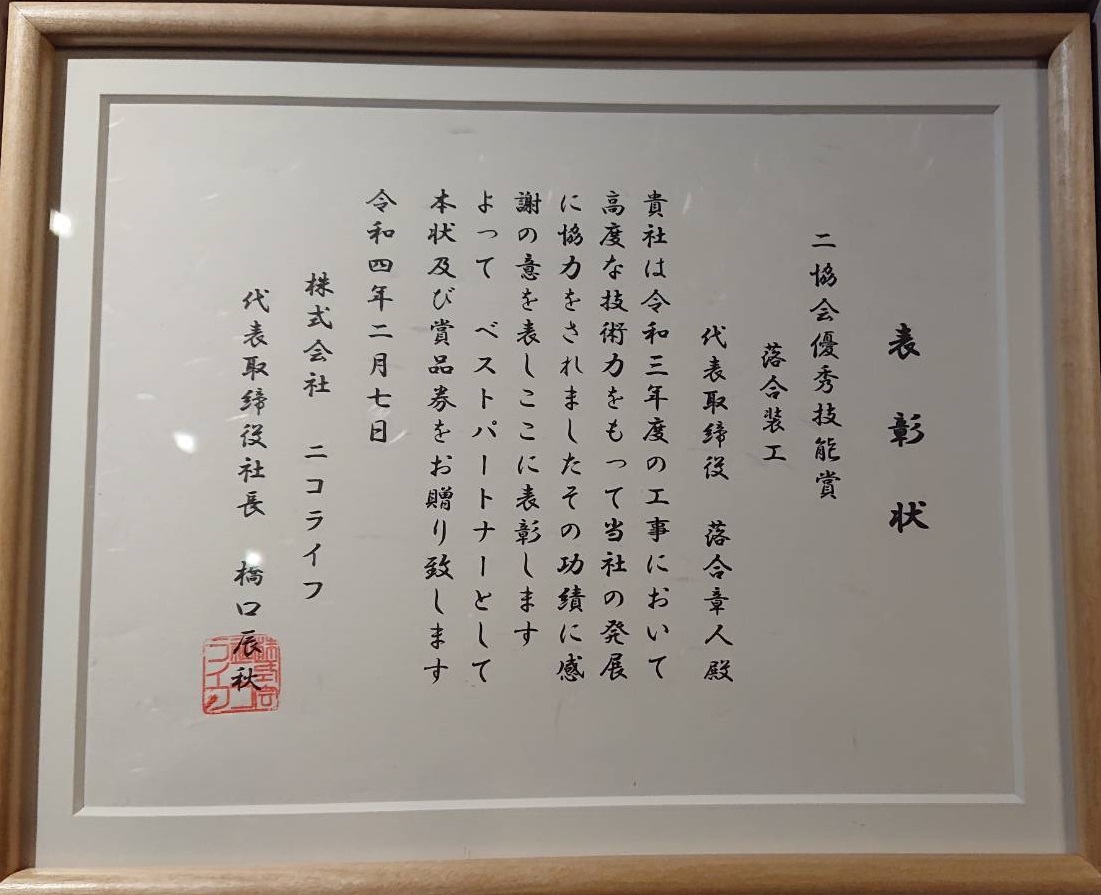 表彰状
二協会優秀技能賞
落合装工
代表取締役 落合章人殿
貴社は令和三年度の工事において
高度な技術力をもって当社の発展
に協力をされましたその功績に感
謝の意を表しここに表彰します
よって ベストパートナーとして
本状及び賞品券をお贈り致します
令和四年二月七日
株式会社 ニコライフ
代表取締役社長 橋口辰秋